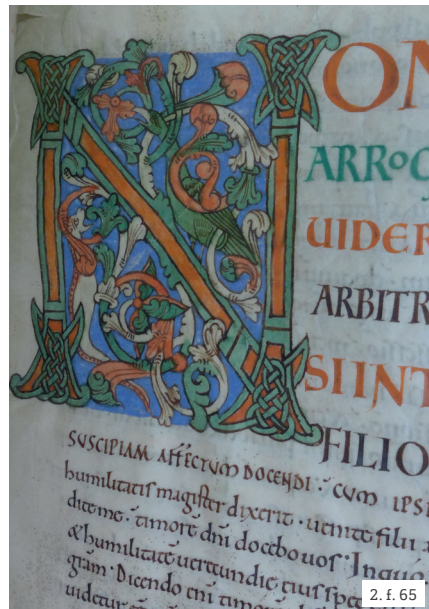 NON
ARROG
UIDER
ARBITR
SI INT
FILIO
SUSCIPIAM AFFECTUM DOCENDI : CUM IPSE
humilitatis magister dixerit · uenite filii
dite me · timore dñi docebo uos · In quo
& humilitate uerecundie eius spec
gram · Dicendo eni timo
uidetur
2. f. 65